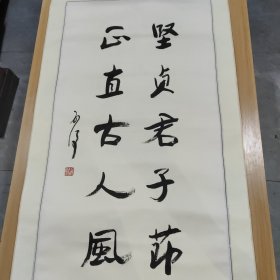 坚贞君子节
正直古人風